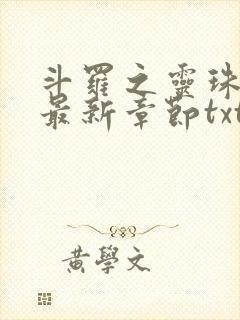 斗羅之靈珠
最新章節txt
黃學文